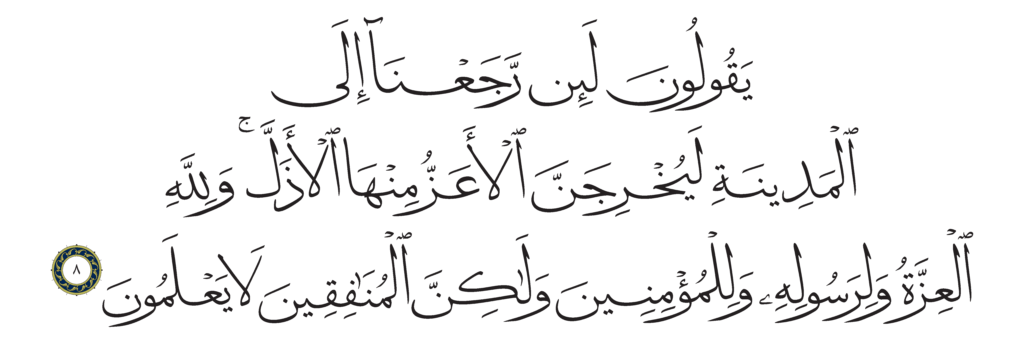 يَقُولُونَ لَئِن رَّجَعْنَآ إِلَى
ٱلْمَدِينَةِ لَيُخْرِجَنَّ ٱلْأَعَزُّ مِنْهَا ٱلْأَذَلَّ ۚ وَلِلَّهِ
ٱلْعِزَّةُ وَلِرَسُولِهِۦ وَلِلْمُؤْمِنِينَ وَلَٰكِنَّ ٱلْمُنَٰفِقِينَ لَا يَعْلَمُونَ ٨